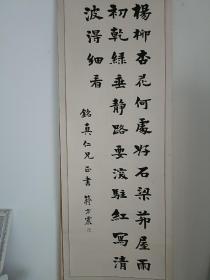 楊柳杏花何處好石梁茆屋雨
初乾綠垂静路要深駐紅寫清
波得細看
銘真仁兄正書 蔣方震